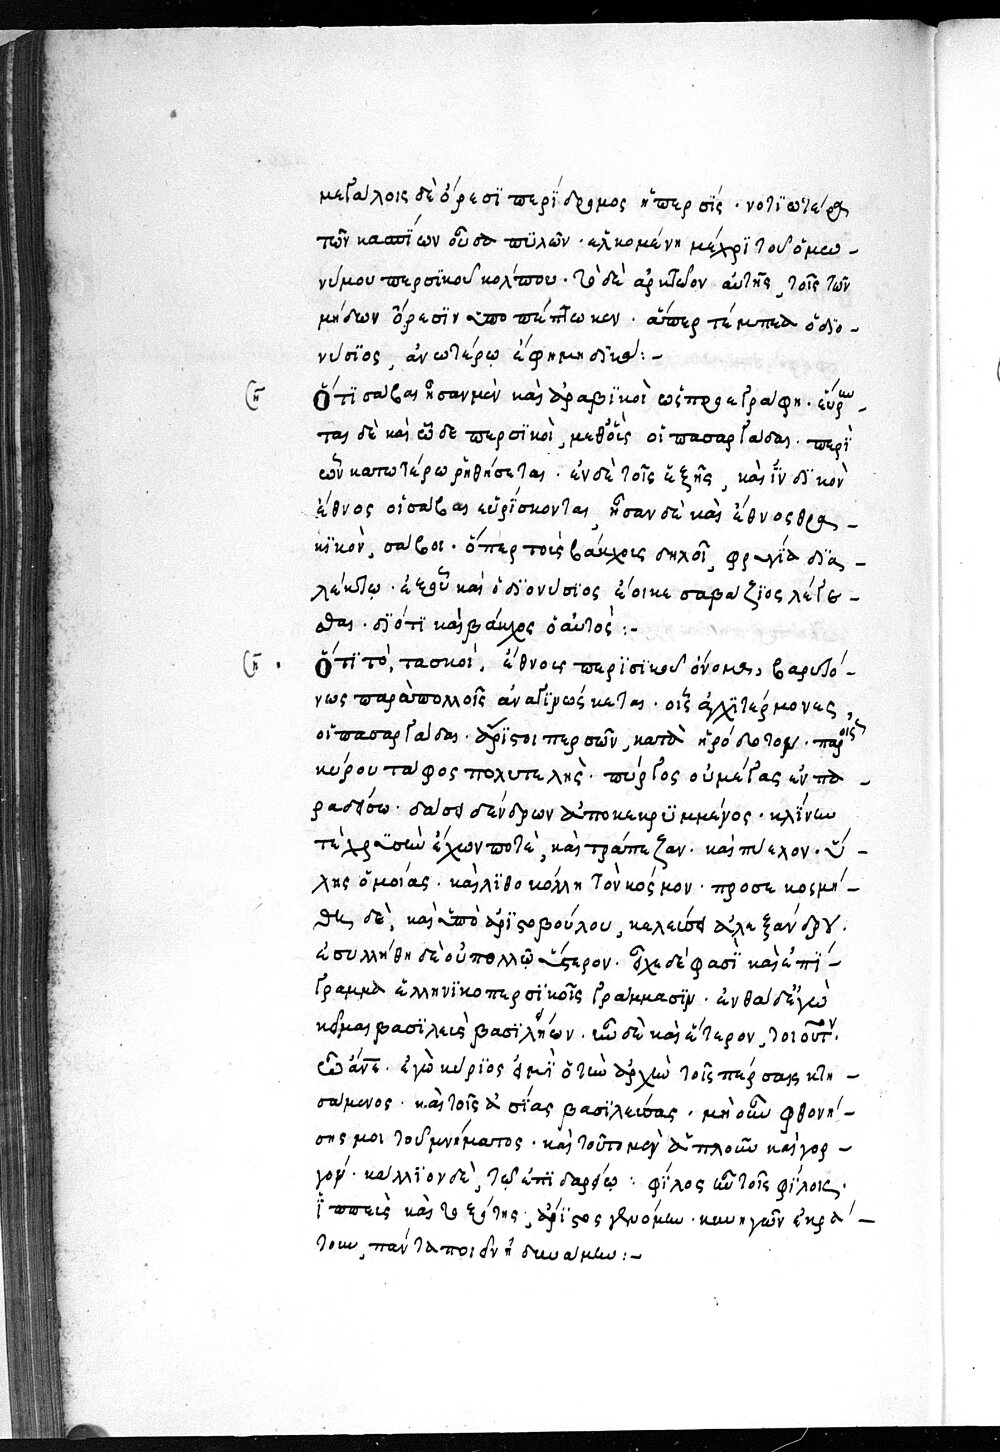 μεγάλοις δὲ ὄρεσϊ περΐδρομος ἡ περσίς · νοτϊωτέρα
τῶν κασπΐων οὖσα πϋλῶν · ἑλκομένη μέχρϊ τοῦ ὁμω –
νύμου περσϊκοῦ κόλπου · τὸ δὲ ἀρκτῶον αὐτῆς, τοῖς τῶν
μήδων ὄρεσϊν ὑποπέπτωκεν · ἅπερ τέμπεα ὁ διο –
νύσϊος, ἀνωτέρω ἐφημη :–
(η) Ὅτϊ σάβαι ἦσαν μὲν καὶ ἀραβϊκοὶ ὡς προεγράφη · εὕρην
ται δὲ καὶ ὧδε περσϊκοὶ, μεθ' οὓς οἱ πασαργάδαι · περϊ
ὧν κατωτέρω ῥηθήσεται · ἐν δὲ τοῖς ἑξῆς, καὶ ΐνδϊκὸν
ἔθνος οἱ σάβαι εὑρΐσκονται, ἦσαν δὲ καὶ ἔθνος θρα –
κϊκὸν, σάβοι · ὅπερ τοὺς βάκχους δηλοῖ, φρυγία δϊα –
λέκτω · ἐξ οὗ καὶ ὁ δϊονύσϊος ἔοικε σαβάζϊος λέγε –
σθαι · δϊότϊ καὶ βάκχος ὁ αὐτὸς :–
(η) Ὅτϊ τὸ, τασκοὶ, ἔθνους περϊσϊκοῦ ὄνομα, βαρυτό –
νως παρὰ πολλοῖς ἀναγϊνώσκεται · οἷς ἀγχϊτέρμονες,
οἱ πασαργάδαι · ἄρϊστοι περσῶν, κατὰ ἡρόδοτον · παρ' οἷς
κύρου τάφος πολυτελὴς · πύργος οὐ μέγας ἐν πα –
ραδείσω · δάσει δένδρων ἀποκεκρϋμμένος · κλΐνην
τὲ χρϋσῆν ἔχων ποτὲ, καὶ τράπεζαν · καὶ πύελον · ὕ –
λης ὁμοίας · καὶ λϊθοκόλλητον κόσμον · προσεκοσμή –
θη δὲ, καὶ ὑπὸ ἀρϊστοβούλου, κελεύσει ἀλεξάνδρου ·
ἐσυλλήθη δὲ οὐ πολλῶ ὕστερον · εἶχε δέ φασϊ καὶ ἐπΐ –
γραμμα ἑλληνϊκὸ περσϊκοῖς γράμμασϊν · ἐνθάδ' ἐγὼ
κεῖμαι βασϊλεὺς βασϊλήων · ἦν δὲ καὶ ἕτερον, τοιοῦτον ·
ὦ ἄνε · ἐγὼ κύρϊος εἰμϊ ὁ τὴν ἀρχὴν τοῖς πέρσαις κτη –
σάμενος · καὶ τοῖς ἀσΐας βασϊλεύσας · μὴ οὖν φθονή –
σῃς μοι τοῦ μνήματος · καὶ τοῦτο μὲν ἁπλοῦν καὶ γορ –
γὸν · κάλλϊον δὲ, τῷ ἐπϊ δαρείῳ : φΐλος ἦν τοῖς φΐλοις ·
ΐππεὺς καὶ τοξότης, ἄρϊστος γενόμην · κυνηγῶν ἐκρά –
τουν, πάντα ποιεῖν ἠδυνάμην :–